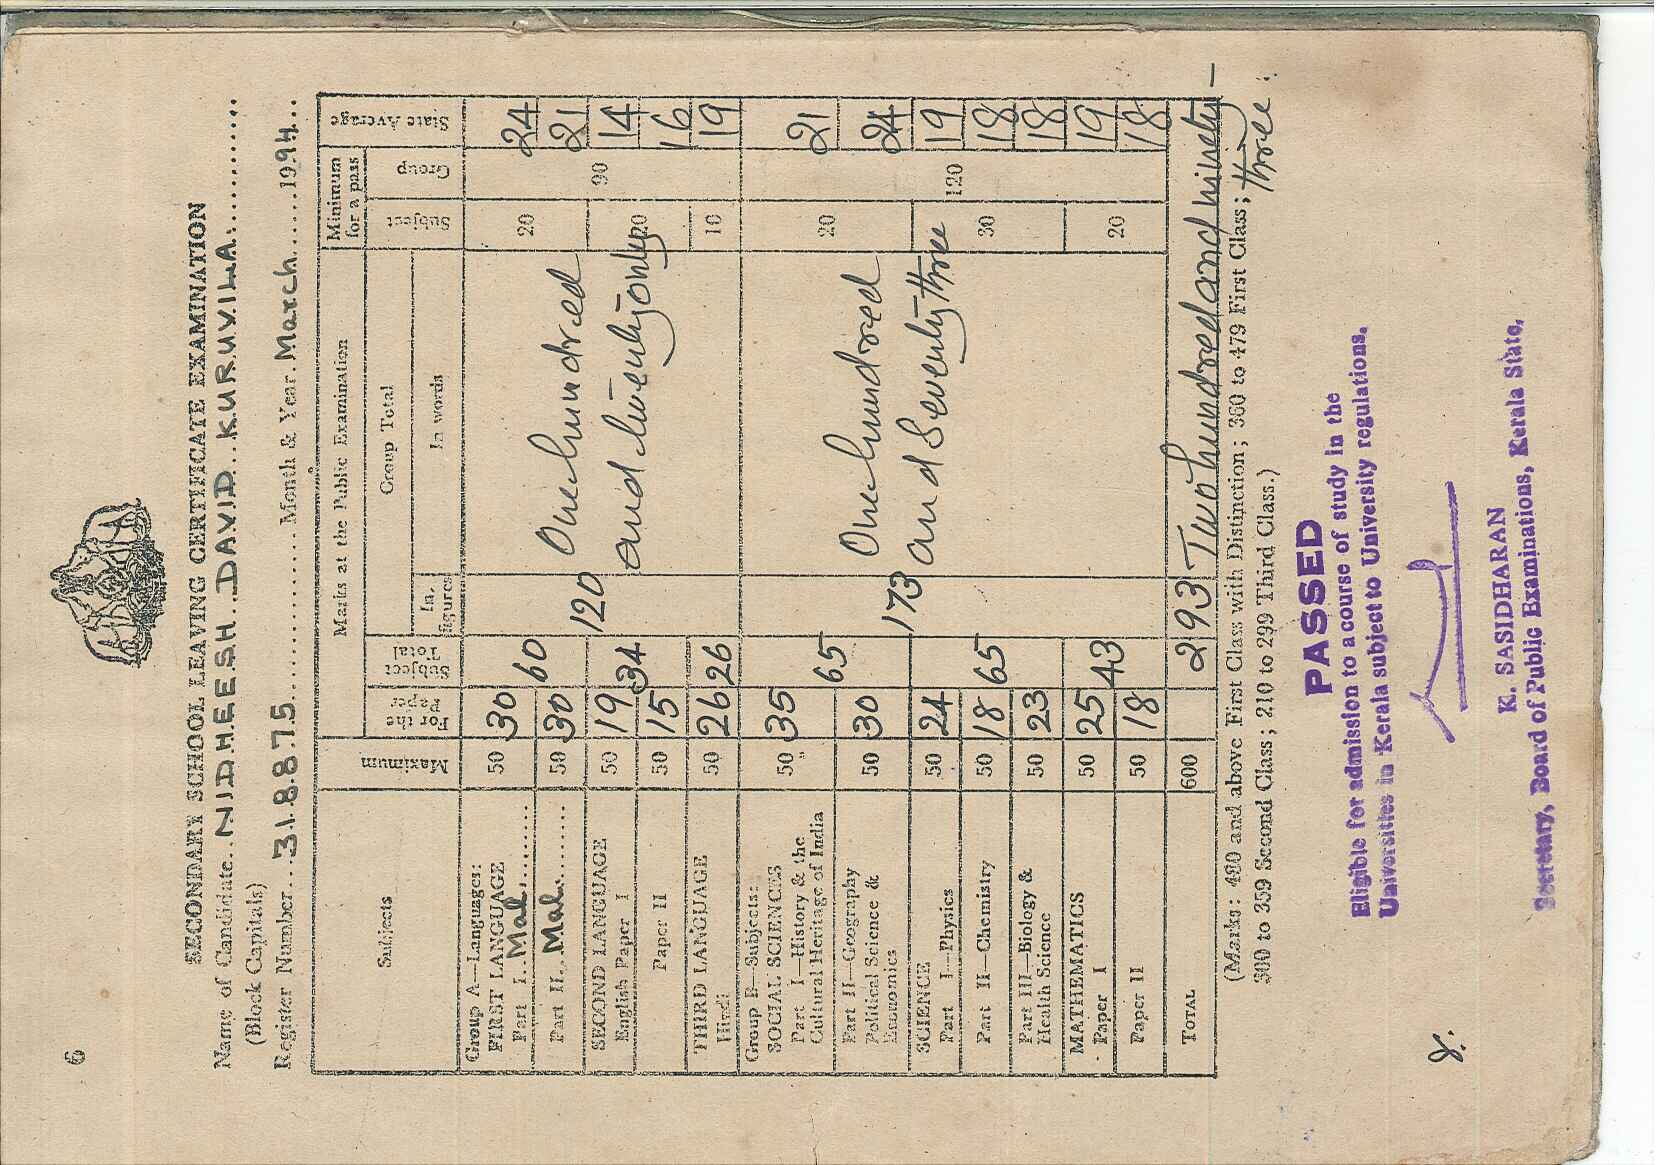 6
SECONDARY SCHOOL LEAVING CERTIFICATE EXAMINATION
Name of Candidate..NIDHEESH..DAVID..KURUVILA..........
(Block Capitals)
Register Number...318875.................. Month & Year. March......1994...
Subjects
Maximum
Marks at the Public Examination
Minimum for a pass
State Average
For the Paper
Subject Total
Group Total
Subject
Group
In figures
In words
Group A—Languages:
FIRST LANGUAGE
Part I. Mal....... 50 30 24
Part II..Mal........ 50 30 60 20 21
SECOND LANGUAGE
English Paper I 50 19 14
Paper II 50 15 34 20 16
120 One hundred and twenty only 90
THIRD LANGUAGE
Hindi 50 26 26 10 19
Group B—Subjects:
SOCIAL SCIENCES
Part I—History & the
Cultural Heritage of India 50 35 21
Part II—Geography
Political Science &
Economics 50 30 65 20 24
173 One hundred and Seventy three 120
SCIENCE
Part I—Physics 50 24 19
Part II—Chemistry 50 18 65 30 18
Part III—Biology &
Health Science 50 23 18
MATHEMATICS
Paper I 50 25 43 20 19
Paper II 50 18 18
TOTAL 600 293 Two hundred and ninety-
three
(Marks: 480 and above First Class with Distinction; 360 to 479 First Class;
300 to 359 Second Class; 210 to 299 Third Class.)
PASSED
Eligible for admission to a course of study in the
Universities in Kerala subject to University regulations.
K. SASIDHARAN
Secretary, Board of Public Examinations, Kerala State.
8.